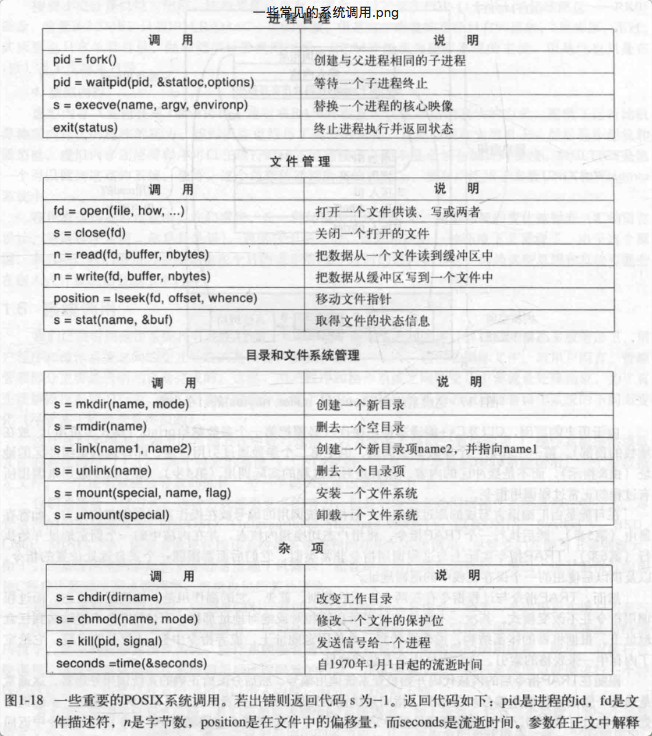 一些常见的系统调用.png
进程管理
调 用 说 明
pid = fork() 创建与父进程相同的子进程
pid = waitpid(pid, &statloc,options) 等待一个子进程终止
s = execve(name, argv, environp) 替换一个进程的核心映像
exit(status) 终止进程执行并返回状态
文件管理
调 用 说 明
fd = open(file, how, ...) 打开一个文件供读、写或两者
s = close(fd) 关闭一个打开的文件
n = read(fd, buffer, nbytes) 把数据从一个文件读到缓冲区中
n = write(fd, buffer, nbytes) 把数据从缓冲区写到一个文件中
position = lseek(fd, offset, whence) 移动文件指针
s = stat(name, &buf) 取得文件的状态信息
目录和文件系统管理
调 用 说 明
s = mkdir(name, mode) 创建一个新目录
s = rmdir(name) 删去一个空目录
s = link(name1, name2) 创建一个新目录项name2，并指向name1
s = unlink(name) 删去一个目录项
s = mount(special, name, flag) 安装一个文件系统
s = umount(special) 卸载一个文件系统
杂 项
调 用 说 明
s = chdir(dirname) 改变工作目录
s = chmod(name, mode) 修改一个文件的保护位
s = kill(pid, signal) 发送信号给一个进程
seconds =time(&seconds) 自1970年1月1日起的流逝时间
图1-18 一些重要的POSIX系统调用。若出错则返回代码 s 为−1。返回代码如下：pid是进程的id，fd是文
件描述符，n是字节数，position是在文件中的偏移量，而seconds是流逝时间。参数在正文中解释